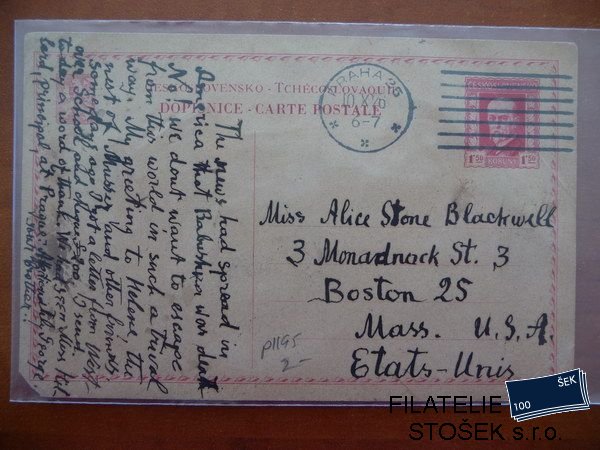 ČESKOSLOVENSKO - TCHÉCOSLOVAQUIE
DOPISNICE - CARTE POSTALE
PRAHA 25
6-7
ČESKOSLOVENSKO
1'50 KORUNY 1'50
Miss Alice Stone Blackwell
3 Monadnock St. 3
Boston 25
Mass. U.S.A.
Etats-Unis
p1195
2-
The news had spread in
America that Babushka was death
No, we dont want to escape
from this world in such a trivial
way. My greeting to Helena, the
rest of Musser and other friends
Some days ago I got a letter from West
over School and 100
to day a word of thank. We had seen Miss
land, Principal at Prague.
100 ŠEK
FILATELIE
STOŠEK s.r.o.